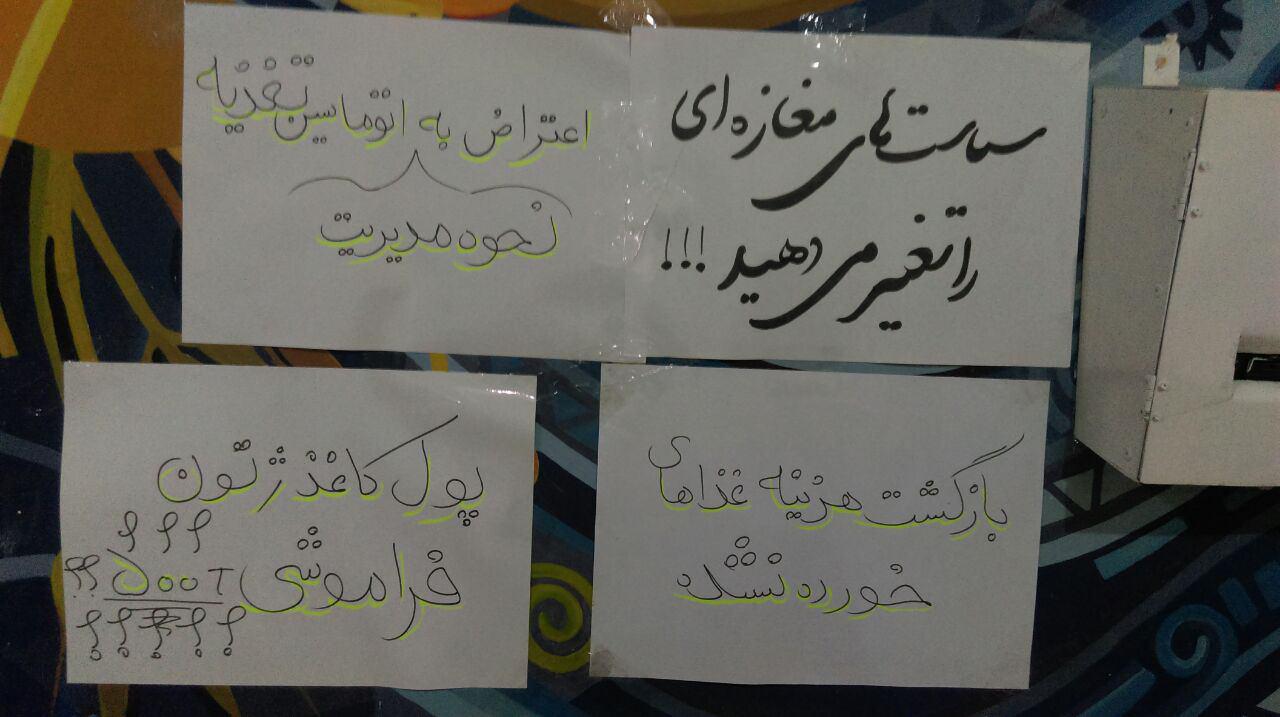 سیاست‌های مغازه‌ای
را تغییر می‌دهید!!!
اعتراض به اتوماسین تغذیه
نحوه مدیریت
بازگشت هزینه غذاهای
خورده نشده
پول کاغذ ژتون
؟؟؟
فراموشی ۵۰۰ T ؟؟
؟؟؟؟؟